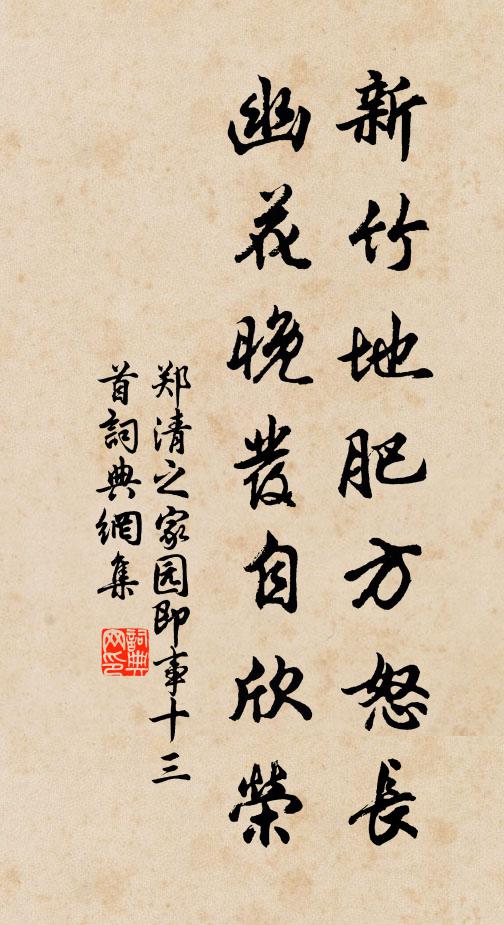 新竹地肥方怒長
幽花晚發自欣榮
郑清之家园即事十三
首詞典網集
詞典网印